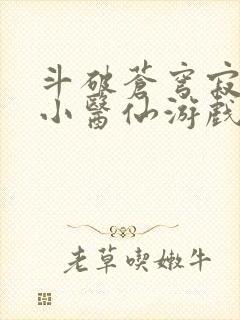 斗破蒼穹寂
小醫仙游戲
老草喫嫩牛